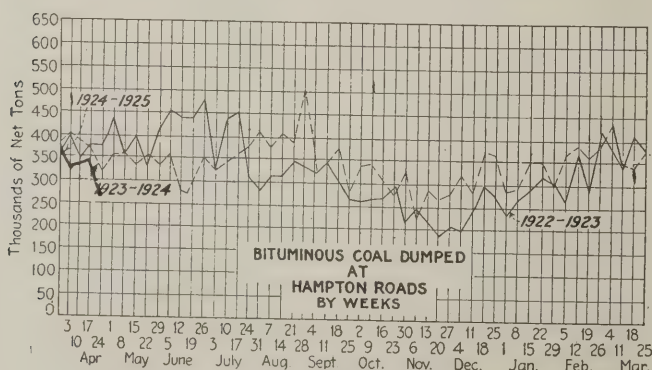 650
600
550
500
450
400
350
300
250
200
150
100
50
0
Thousands of Net Tons
1924-1925
1923-1924
1922-1923
BITUMINOUS COAL DUMPED
AT
HAMPTON ROADS
BY WEEKS
3 17 1 15 29 12 26 10 24 7 21 4 18 2 16 30 13 27 11 25 8 22 5 19 4 18
10 24 8 22 5 19 3 17 31 14 28 11 25 9 23 6 20 4 18 1 15 29 12 26 11 25
Apr May June July Aug. Sept Oct. Nov. Dec. Jan. Feb. Mar.